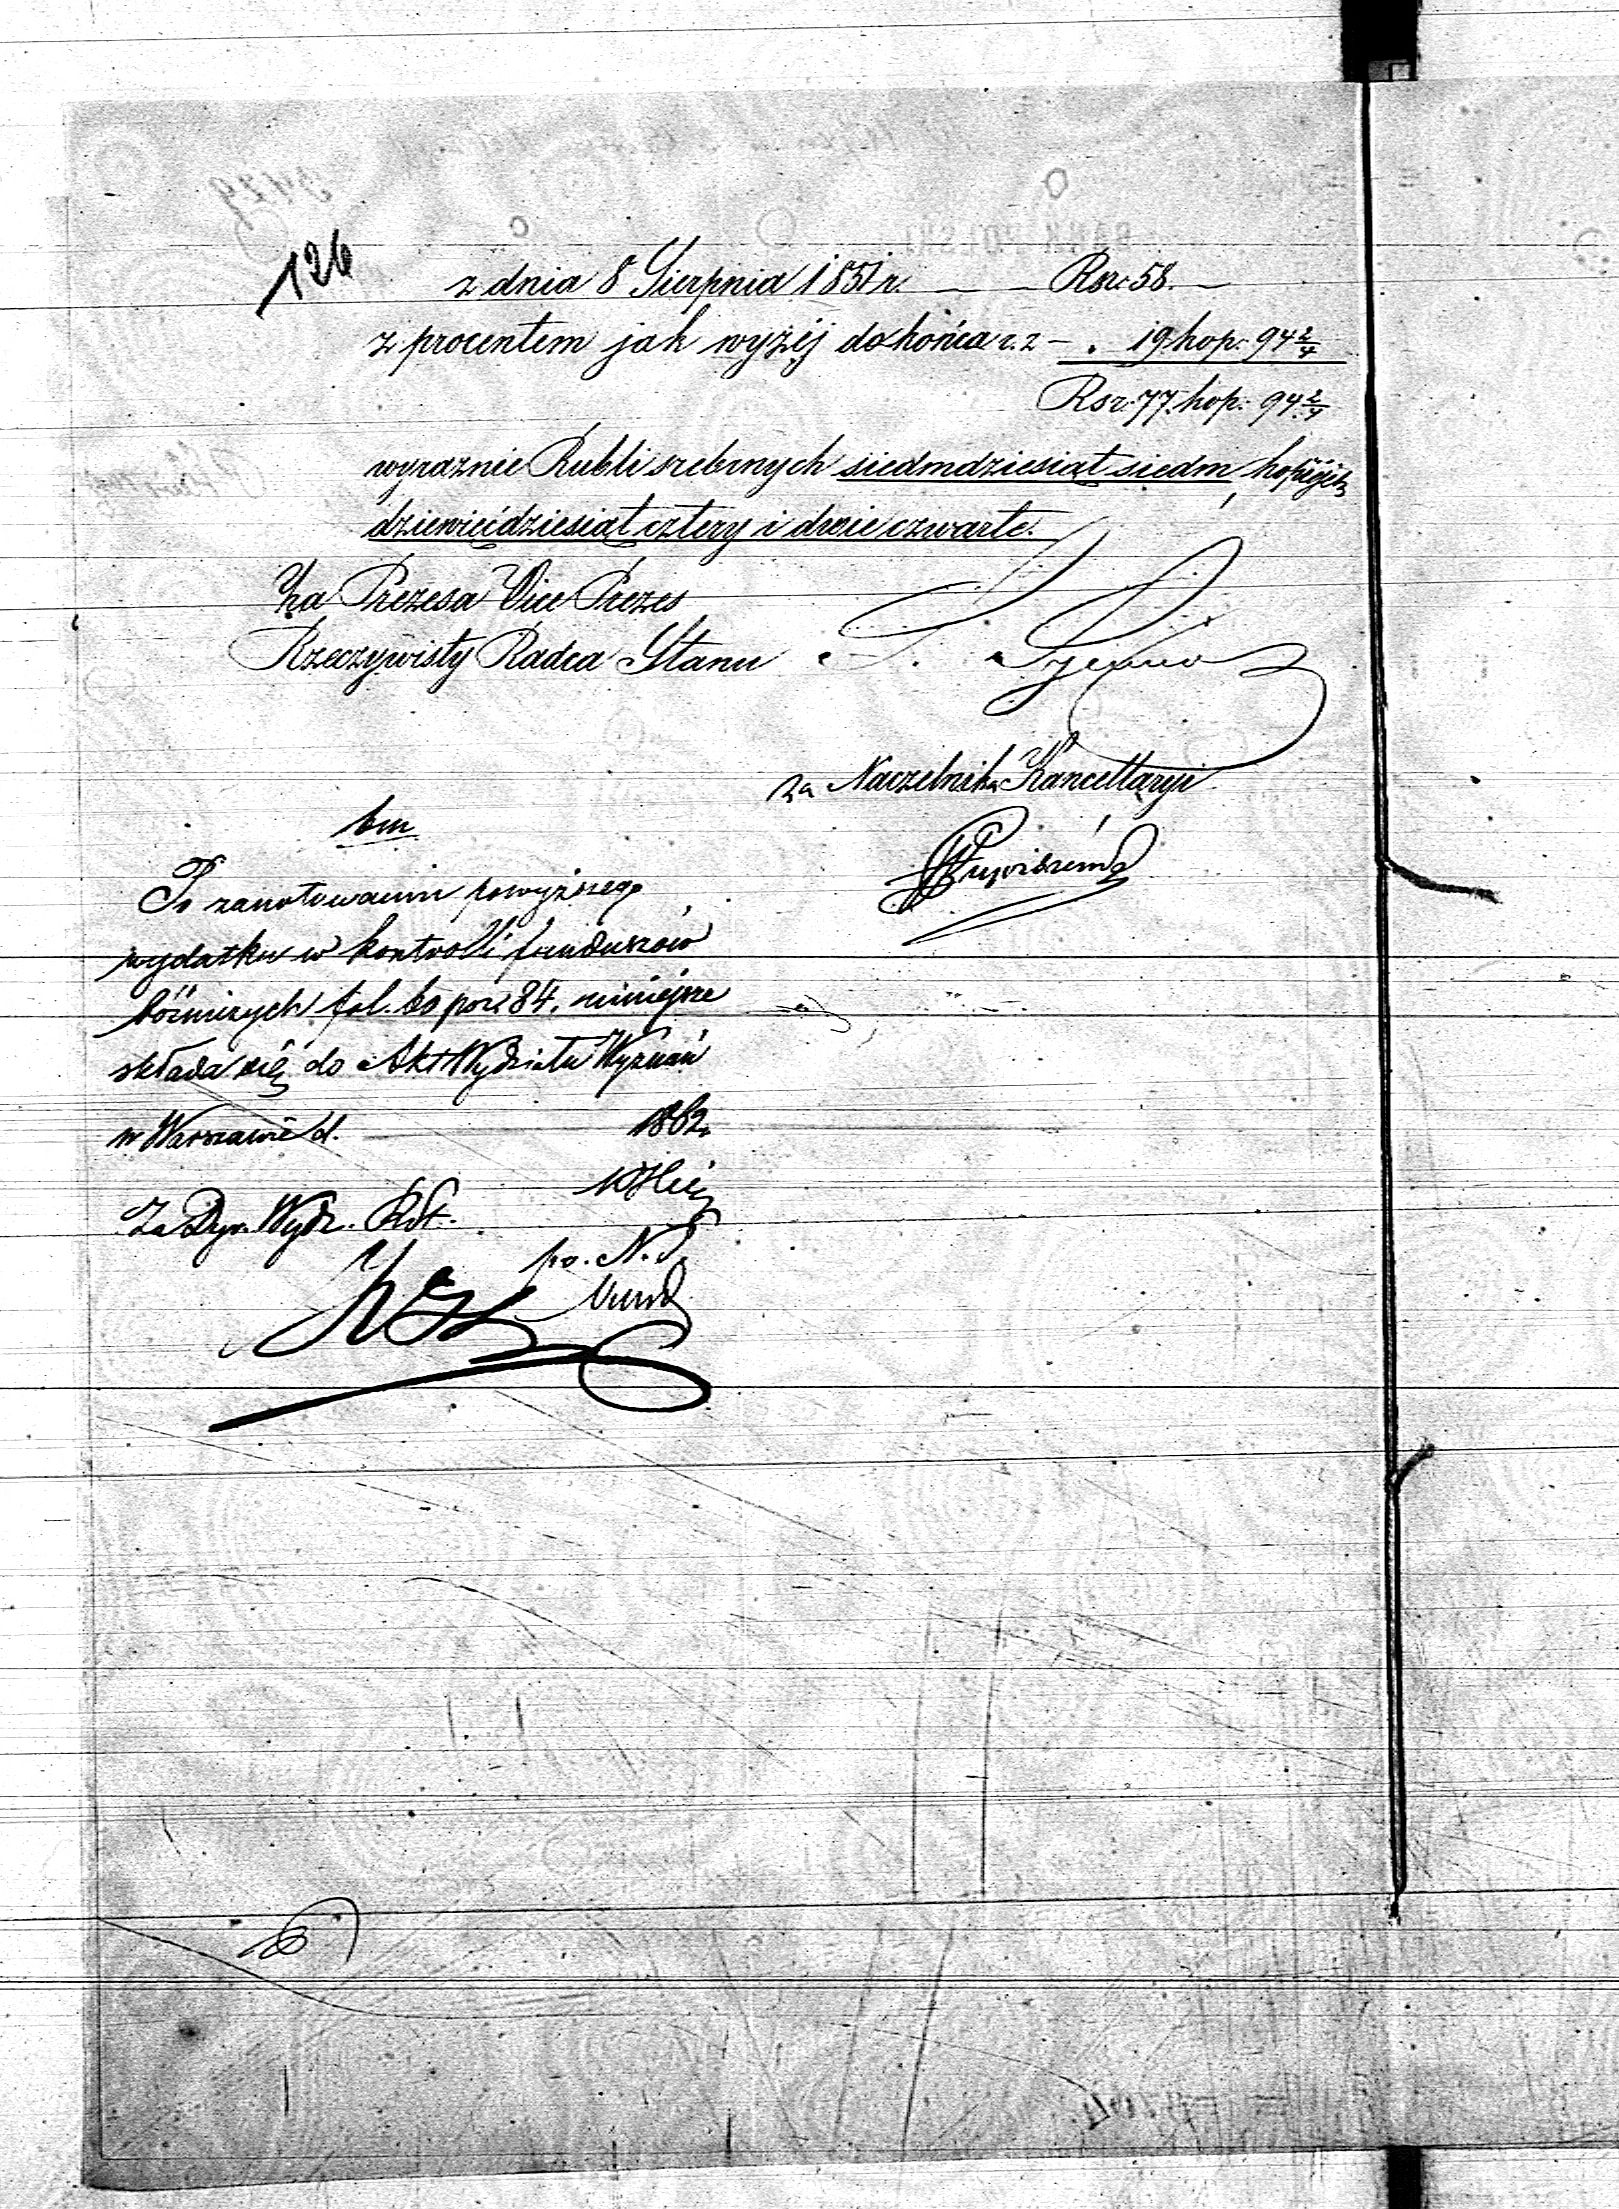 126
z dnia 8 Sierpnia 1851 r. — — Rsr: 58. —
z procentem jak wyżéj do końca r. z — „ 19 kop: 94 2/4
Rsr: 77 kop: 94 2/4
wyraznie Rubli srebrnych siedmdziesiąt siedm kopiejek
dziewięćdziesiąt cztery i dwie czwarte.
Za Prezesa Vice Prezes
Rzeczywisty Radca Stanu
za Naczelnika Kancellaryi
Po zanotowaniu powyższego
wydatku w kontrolli funduszów
bóżniczych fol. 60 poz 84. niniejsze
składa się do Akt Wydziału Wyznań
w Warszawie d. 1862.
Za Dyr. Wydz.
po. N. S.